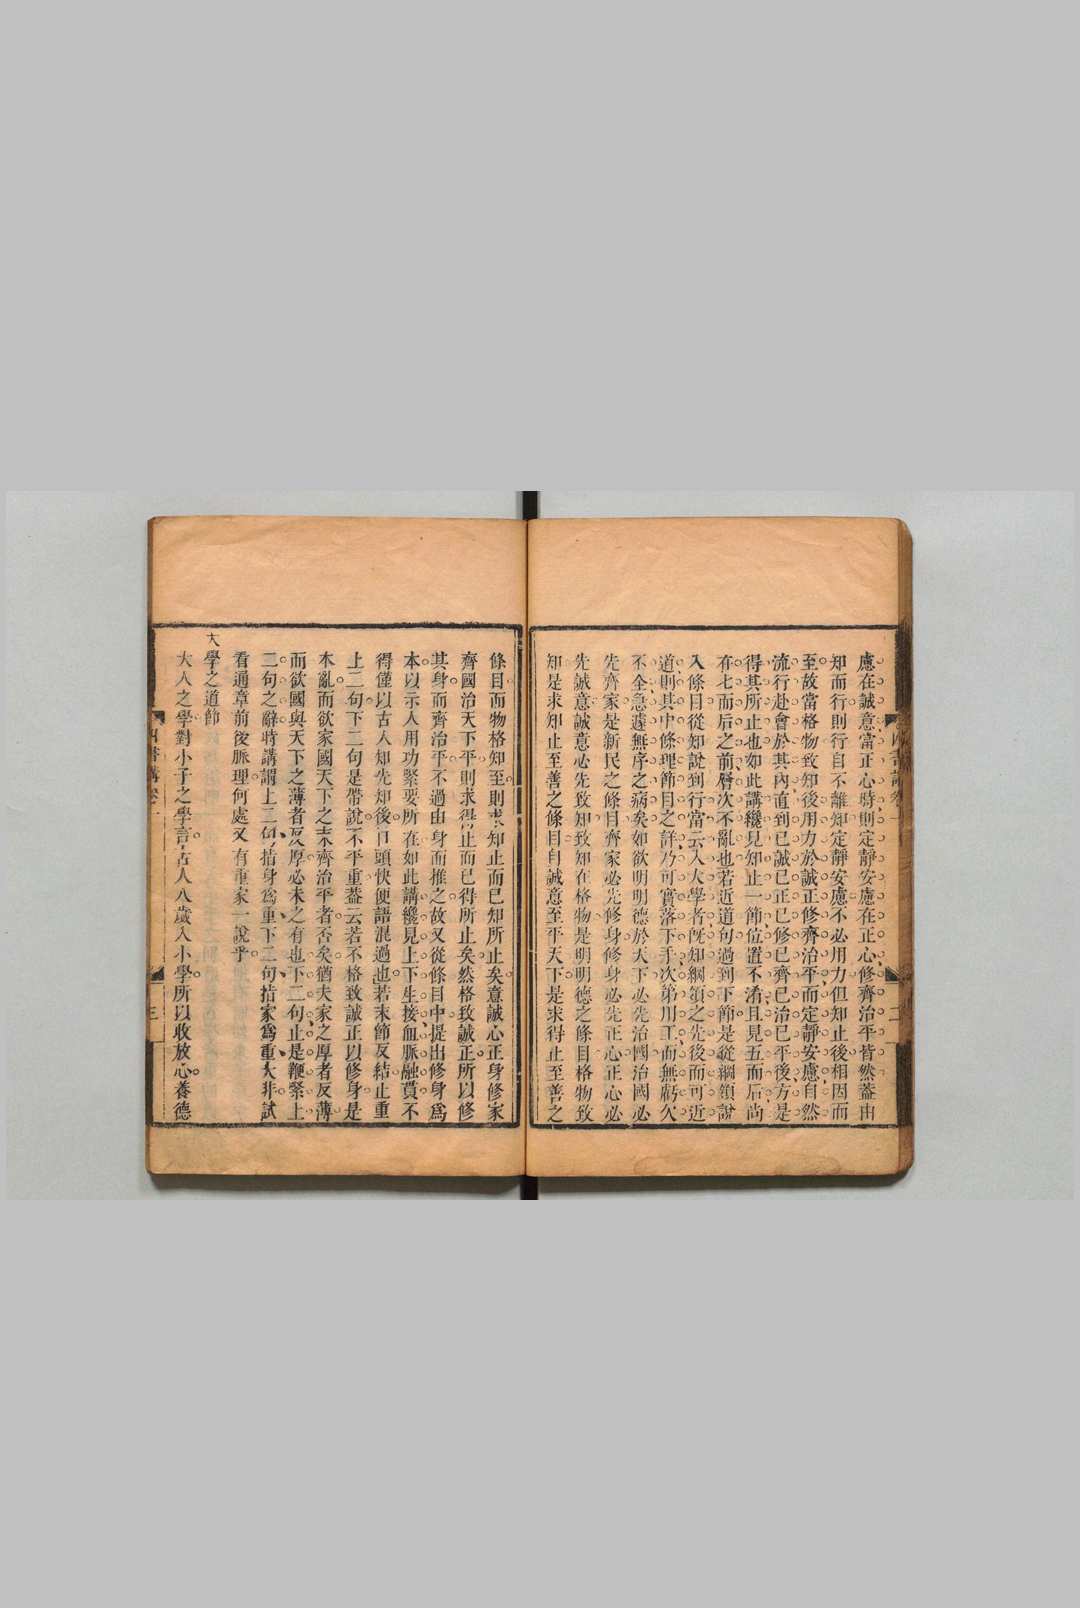 慮在誠意當正心時則定靜安慮在正心修齊治平皆然葢由
知而行則行自不離知定靜安慮不必用力但知止後相因而
至故當格物致知後用力於誠正修齊治平而定靜安慮自然
流行赴會於其內直到已誠已正已修已齊已治已平後方是
得其所止也如此講纔見知止一節位置不淆且見五而后尚
有七而后之前層次不亂也若近道句過到下節是從綱領說
入條目從知說到行當云入大學者旣知綱領之先後而可近
道則其中條理節目之詳乃可實落下手次第用工而無虧欠
不全急遽無序之病矣如欲明明德於天下必先治國治國必
先齊家是新民之條目齊家必先修身修身必先正心正心必
先誠意誠意必先致知致知在格物是明明德之條目格物致
知是求知止至善之條目自誠意至平天下是求得止至善之
條目而物格知至則求知止而已知所止矣意誠心正身修家
齊國治天下平則求得止而已得所止矣然格致誠正所以修
其身而齊治平不過由身而推之故又從條目中提出修身爲
本以示人用功緊要所在如此講纔見上下生接血脈融貫不
得僅以古人知先知後口頭快便語混過也若末節反結止重
上二句下二句是帶說不平重葢云若不格致誠正以修身是
本亂而欲家國天下之末齊治平者否矣猶夫家之厚者反薄
而欲國與天下之薄者反厚必未之有也下二句止是鞭緊上
二句之辭時講謂上二句指身爲重下二句指家爲重大非試
看通章前後脈理何處又有重家一說乎
大學之道節
大人之學對小子之學言古人八歲入小學所以收放心養德
四書講 卷一
二
三